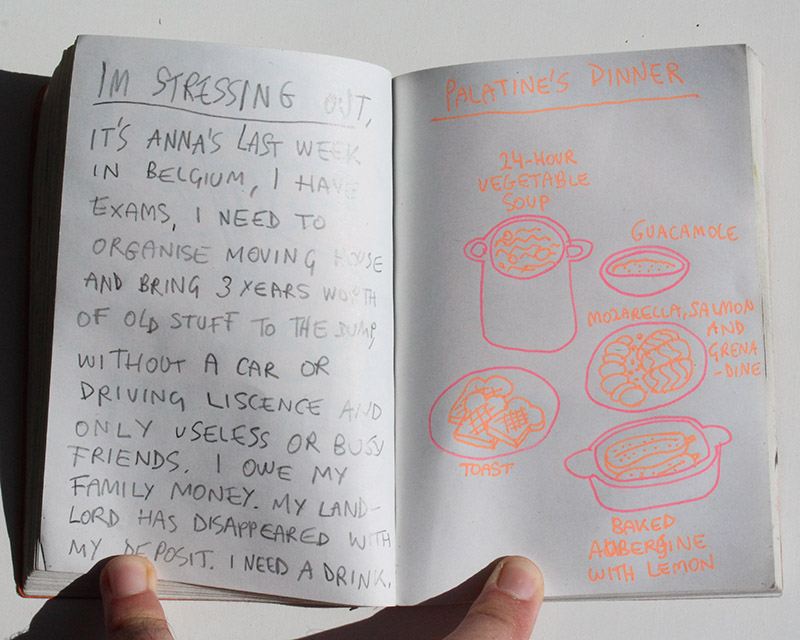 IM STRESSING OUT,
IT'S ANNA'S LAST WEEK
IN BELGIUM, I HAVE
EXAMS, I NEED TO
ORGANISE MOVING HOUSE
AND BRING 3 YEARS WORTH
OF OLD STUFF TO THE DUMP,
WITHOUT A CAR OR
DRIVING LISCENCE AND
ONLY USELESS OR BUSY
FRIENDS. I OWE MY
FAMILY MONEY. MY LAND-
LORD HAS DISAPPEARED WITH
MY DEPOSIT. I NEED A DRINK.
PALATINE'S DINNER
24-HOUR
VEGETABLE
SOUP
GUACAMOLE
MOZARELLA, SALMON
AND
GRENA
-DINE
TOAST
BAKED
AUBERGINE
WITH LEMON